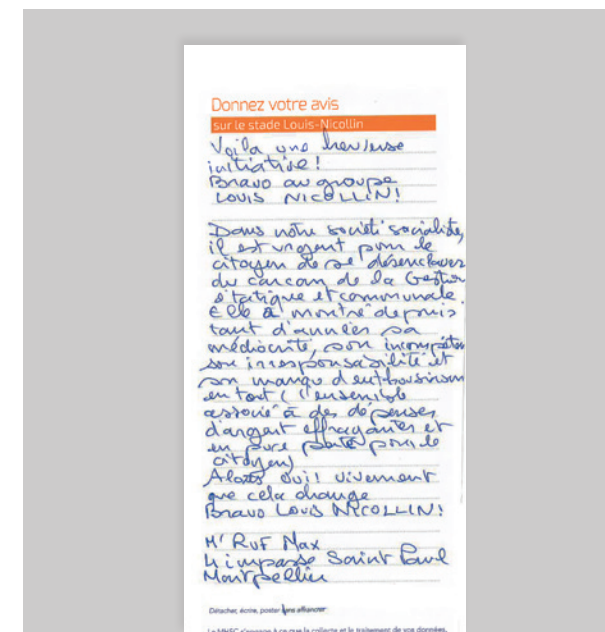 Donnez votre avis
sur le stade Louis-Nicollin
Voila une heureuse
initiative !
Bravo au groupe
LOUIS NICOLLIN !
Dans notre société socialiste,
il est urgent pour le
citoyen de se désenclaver
du carcan de la Gestion
étatique et communale.
Elle a montré depuis
tant d'années sa
médiocrité, son incompéten
son irresponsabilité et
son manque d'enthousiasm
en tout (l'ensemble
associé à des dépenses
d'argent effrayantes et
en pure perte pour le
citoyen)
Alors oui ! vivement
que cela change
Bravo Louis NICOLLIN !
Mr RUF Max
4 impasse Saint Paul
Montpellier
Détacher, écrire, poster sans affranchir
Le MHSC s'engage à ce que la collecte et le traitement de vos données,